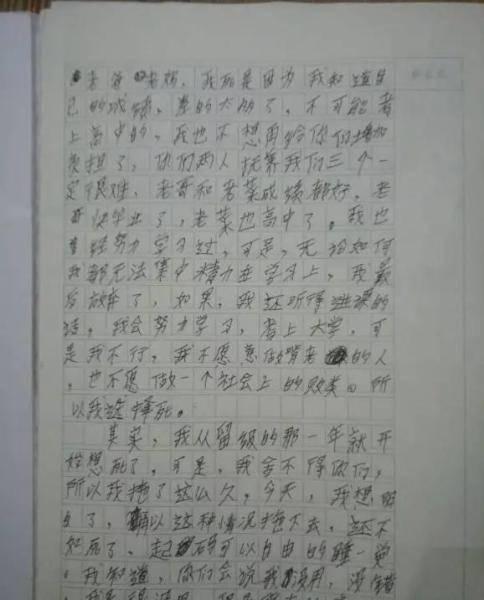 老爸老妈，我死是因为我知道自
己的成绩，差的太多了，不可能考
上高中的，我也不想再给你们增加
负担了，你们两人抚养我们三个一
定很难，老哥和老菜成绩都好，老
哥快毕业了，老菜也高中了。我也
曾经努力学习过，可是，无论如何
我都无法集中精力在学习上，我最
后放弃了，如果，我还听得进课的
话，我会努力学习，考上大学，可
是我不行，我不愿意做啃老的人
，也不愿做一个社会上的败类。所
以我选择死。
其实，我从留级的那一年就开
始想死了，可是，我舍不得你们，
所以我拖了这么久，今天，我想明
白了，以这种情况拖下去，还不
如死了，起码可以自由的睡一觉
。我知道，你们会说我没用，没